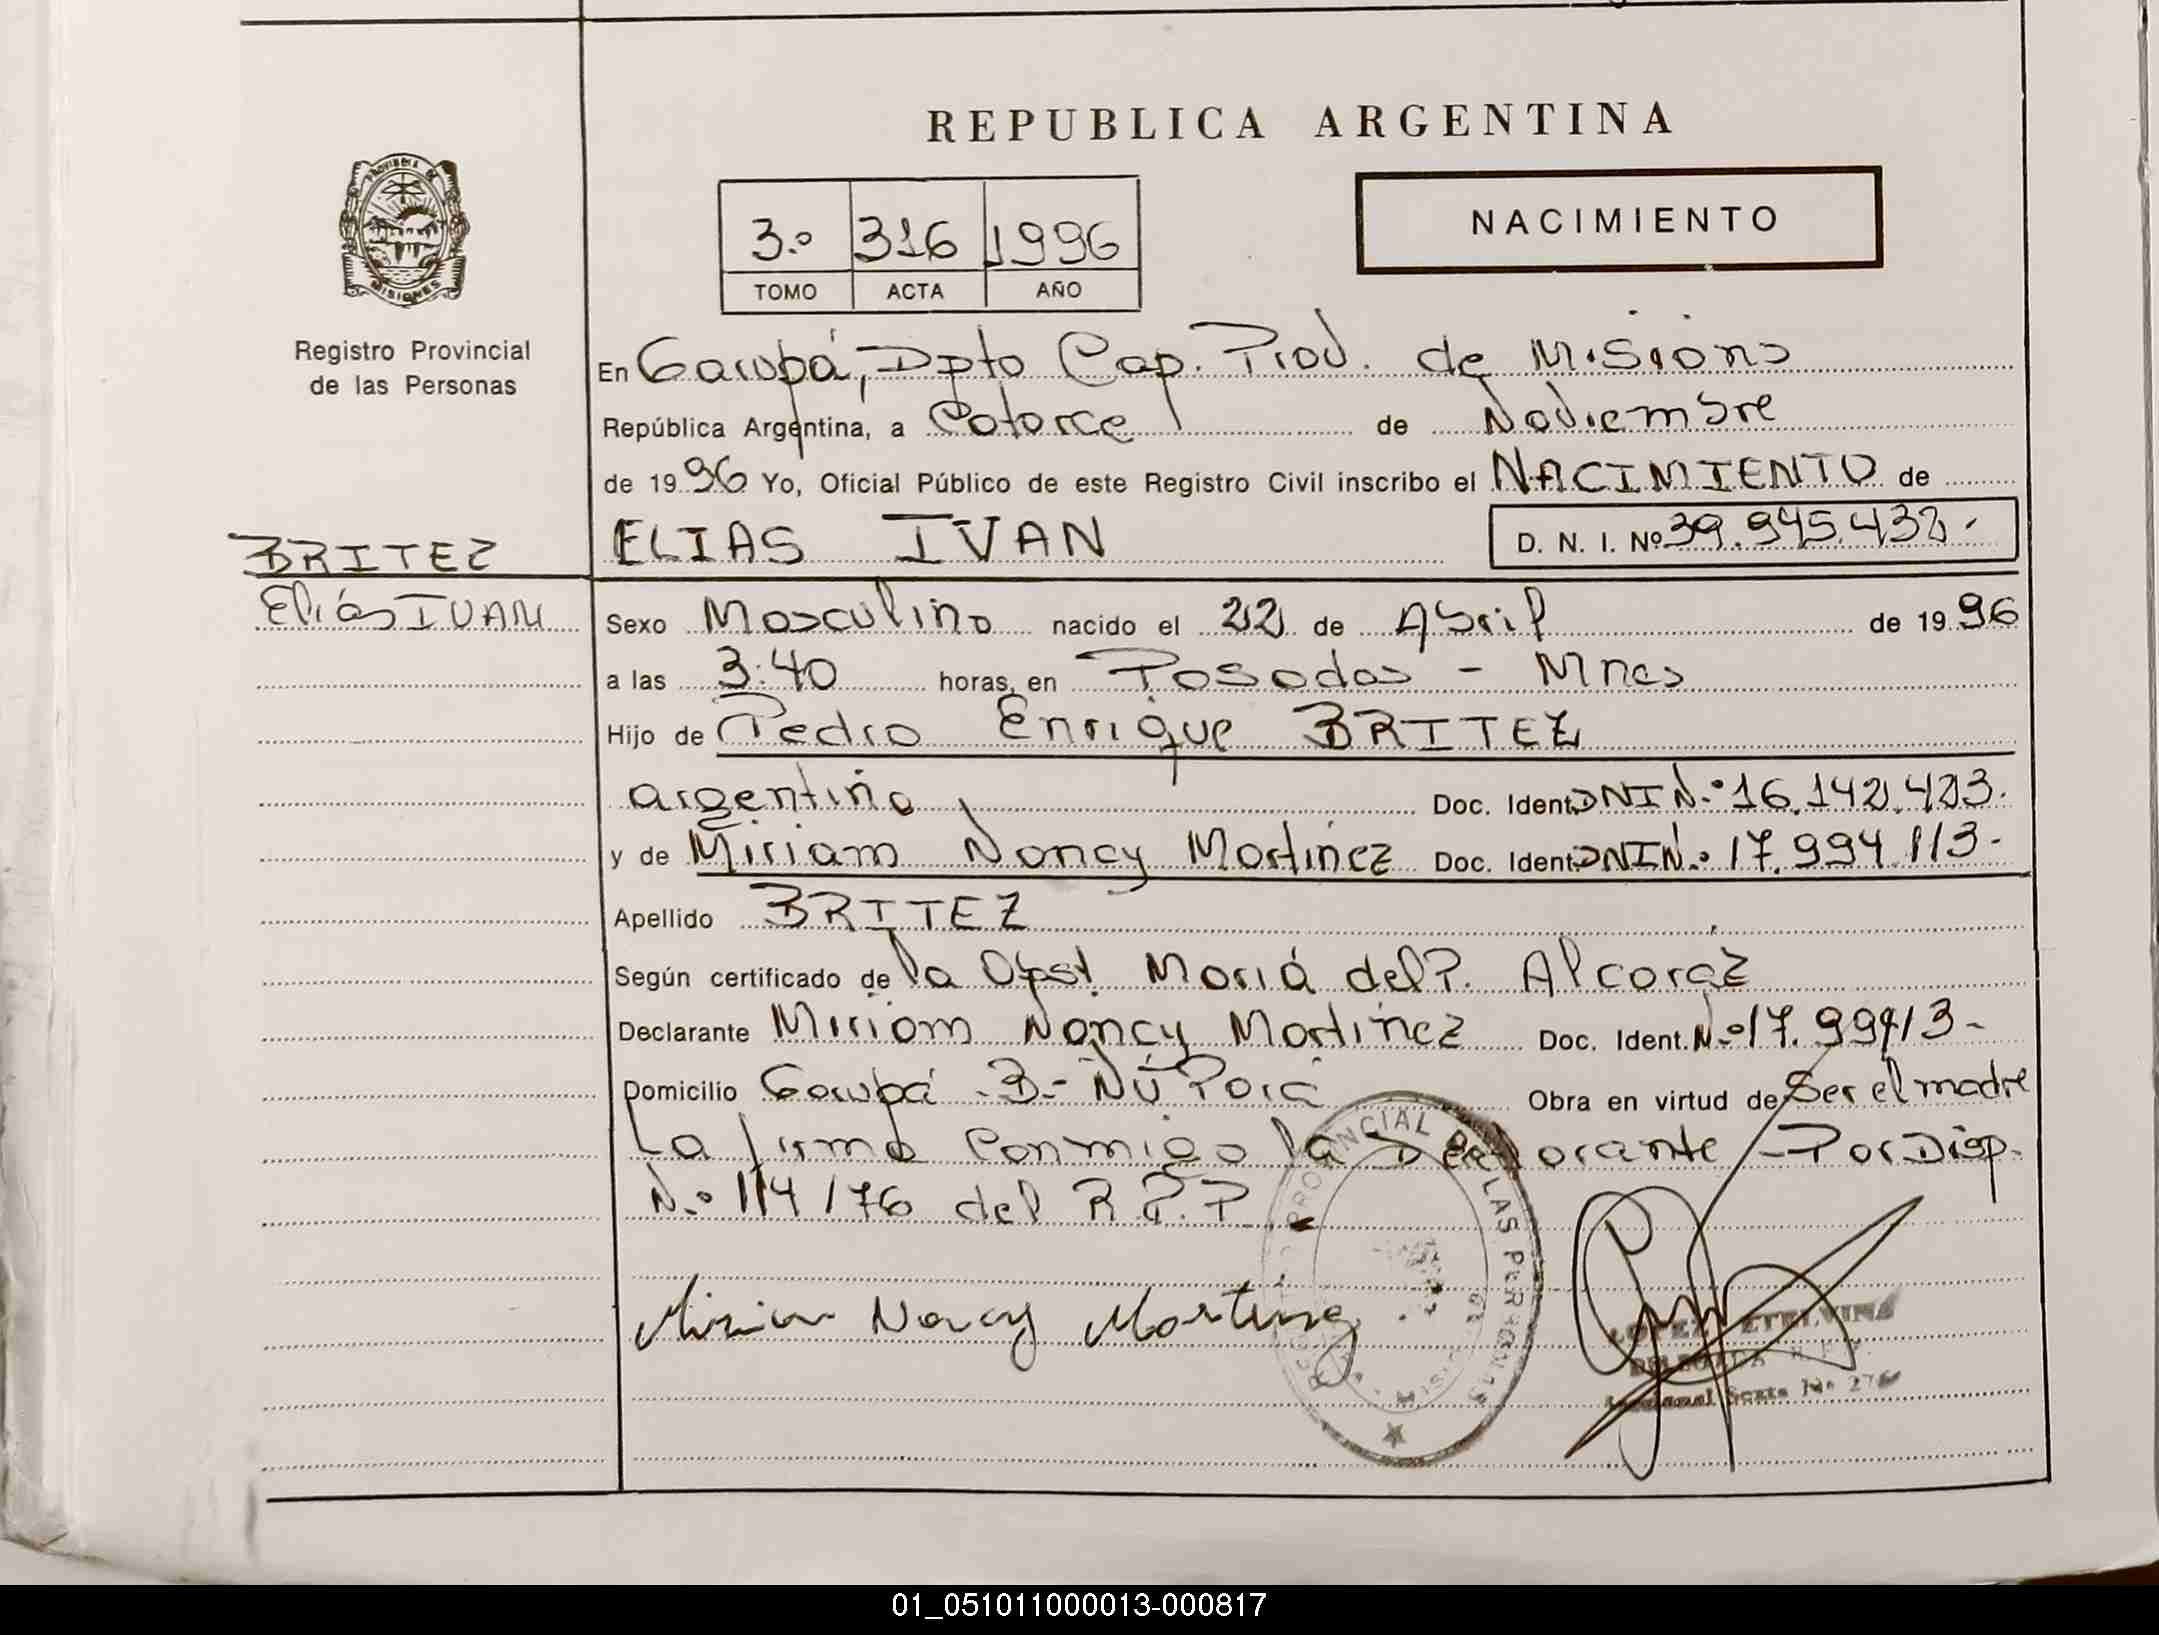 REPUBLICA ARGENTINA
PROVINCIA DE MISIONES
3.º 316 1996
TOMO ACTA AÑO
NACIMIENTO
Registro Provincial
de las Personas
En Garupá, Dpto Cap. Prov. de Misions
República Argentina, a Catorce de Noviembre
de 1996 Yo, Oficial Público de este Registro Civil inscribo el NACIMIENTO de
BRITEZ
Elías IVAN
ELIAS IVAN D. N. I. Nº 39.945.432.-
Sexo Masculino nacido el 22 de Abril de 1996
a las 3:40 horas, en Posadas - Mnes
Hijo de Pedro Enrique BRITEZ
argentino Doc. Ident. DNI N.º 16.142.423.
y de Miriam Nancy Martinez Doc. Ident. DNI N.º 17.994.113-
Apellido BRITEZ
Según certificado de la Obst. María del P. Alcaraz
Declarante Miriam Nancy Martinez Doc. Ident. N.º 17.994113-
Domicilio Garupá - B- Ñú Porá Obra en virtud de Ser el madre
La firma conmigo la Declarante - Por Disp.
N.º 114/76 del R.P.P.
Miriam Nancy Martinez
PROVINCIAL DE LAS PERSONAS
LOPEZ ETELVINA
DELEGADA R.P.P.
Seccional Sexta Nº 276
01_051011000013-000817